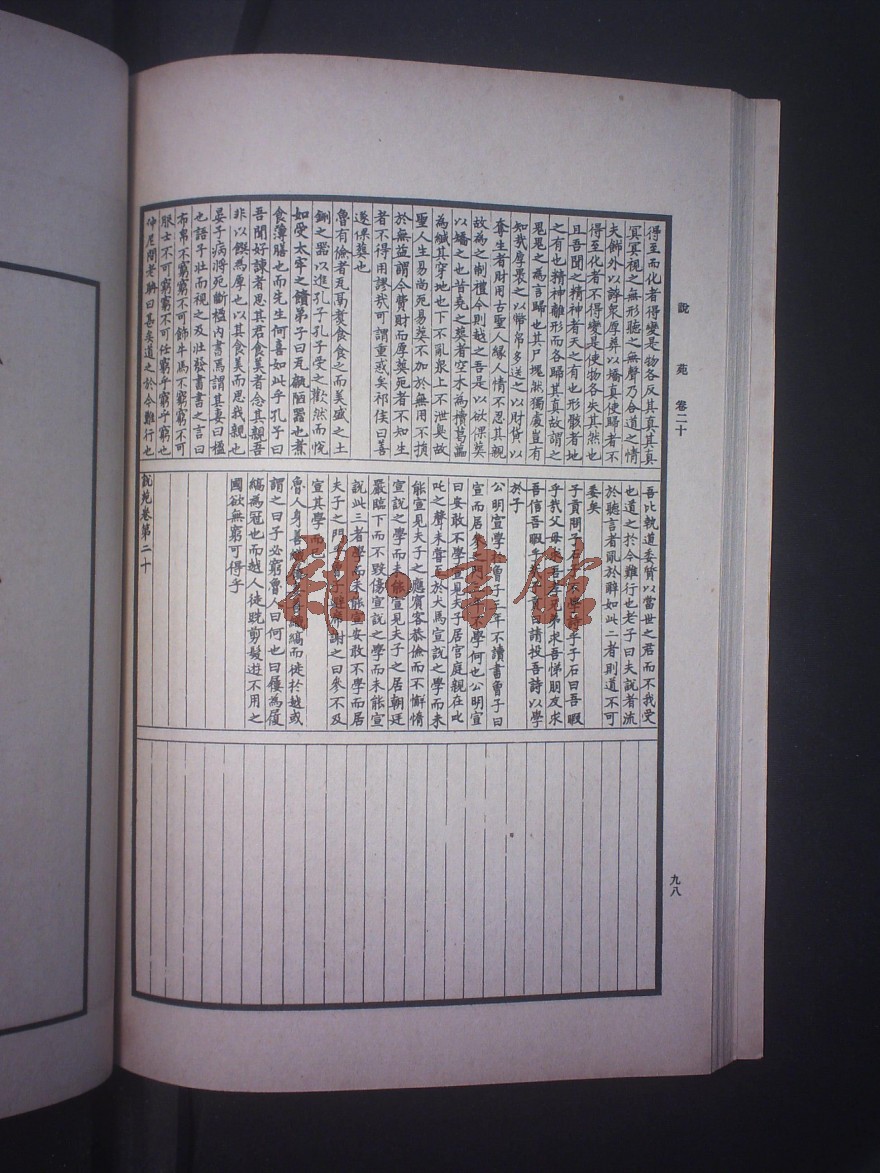 說苑 卷二十
得至而化者得變是物各反其真其真
冥冥視之無形聽之無聲乃合道之情
夫飾外以誇衆厚葬以矯真使歸者不
得至化者不得變是使物各失其然也
且吾聞之精神者天之有也形骸者地
之有也精神離形而各歸其真故謂之
鬼鬼之為言歸也其尸塊然獨處豈有
知哉厚裹之以幣帛多送之以財貨以
奪生者財用古聖人緣人情不忍其親
故為之制禮今則越之吾是以欲倮葬
以矯之也昔堯之葬者空木為櫝葛藟
為緘其穿地也下不亂泉上不泄臭故
聖人生易尚死易葬不加於無用不損
於無益謂今費財而厚葬死者不知生
者不得用謬哉可謂重惑矣祁侯曰善
遂倮葬也
魯有儉者瓦鬲煑食食之而美盛之土
鉶之器以進孔子孔子受之歡然而悅
如受太牢之饋弟子曰瓦甂陋器也煮
食薄膳也而先生何喜如此乎孔子曰
吾聞好諫者思其君食美者念其親吾
非以饌為厚也以其食美而思我親也
晏子病將死斷楹内書焉謂其妻曰楹
也語子壯而視之及壯發書書之言曰
布帛不窮窮不可飾牛馬不窮窮不可
服士不可窮窮不可任窮乎窮乎窮也
仲尼問老聃曰甚矣道之於今難行也
吾比執道委質以當世之君而不我受
也道之於今難行也老子曰夫說者流
於聽言者亂於辭如此二者則道不可
委矣
子貢問子石子不學詩乎子石曰吾暇
乎哉父母求吾孝兄弟求吾悌朋友求
吾信吾暇乎哉子貢曰請投吾詩以學
於子
公明宣學於曾子三年不讀書曾子曰
宣而居參之門三年不學何也公明宣
曰安敢不學宣見夫子居宫庭親在叱
吒之聲未嘗至於犬馬宣說之學而未
能宣見夫子之應賓客恭儉而不懈惰
宣說之學而未能宣見夫子之居朝廷
嚴臨下而不毀傷宣說之學而未能宣
說此三者學而未能宣安敢不學而居
夫子之門乎曾子避席謝之曰參不及
宣其學而已
魯人身善織屨妻善織縞而徙於越或
謂之曰子必窮魯人曰何也曰屨為履
縞為冠也而越人徒跣剪髮遊不用之
國欲無窮可得乎
說苑卷第二十
九八
雜·言館